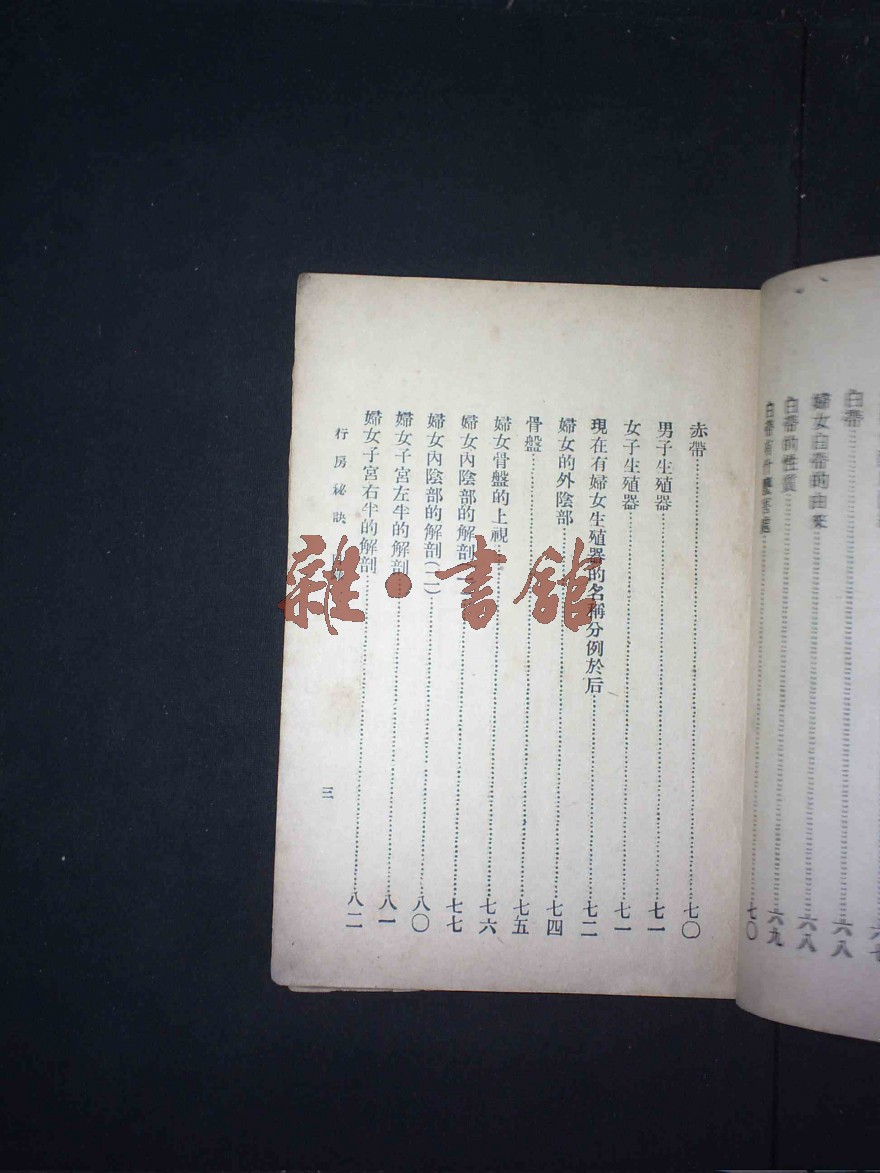 白帶……六八
婦女白帶的由來……六八
白帶的性質……六九
七〇
赤帶……七〇
男子生殖器……七一
女子生殖器……七一
現在有婦女生殖器的名稱分例於后……七二
婦女的外陰部……七四
骨盤……七五
婦女骨盤的上視……七六
婦女內陰部的解剖……七七
婦女內陰部的解剖(二)……八〇
婦女子宮左半的解剖……八一
婦女子宮右半的解剖……八二
行房秘訣
三
雜·書館